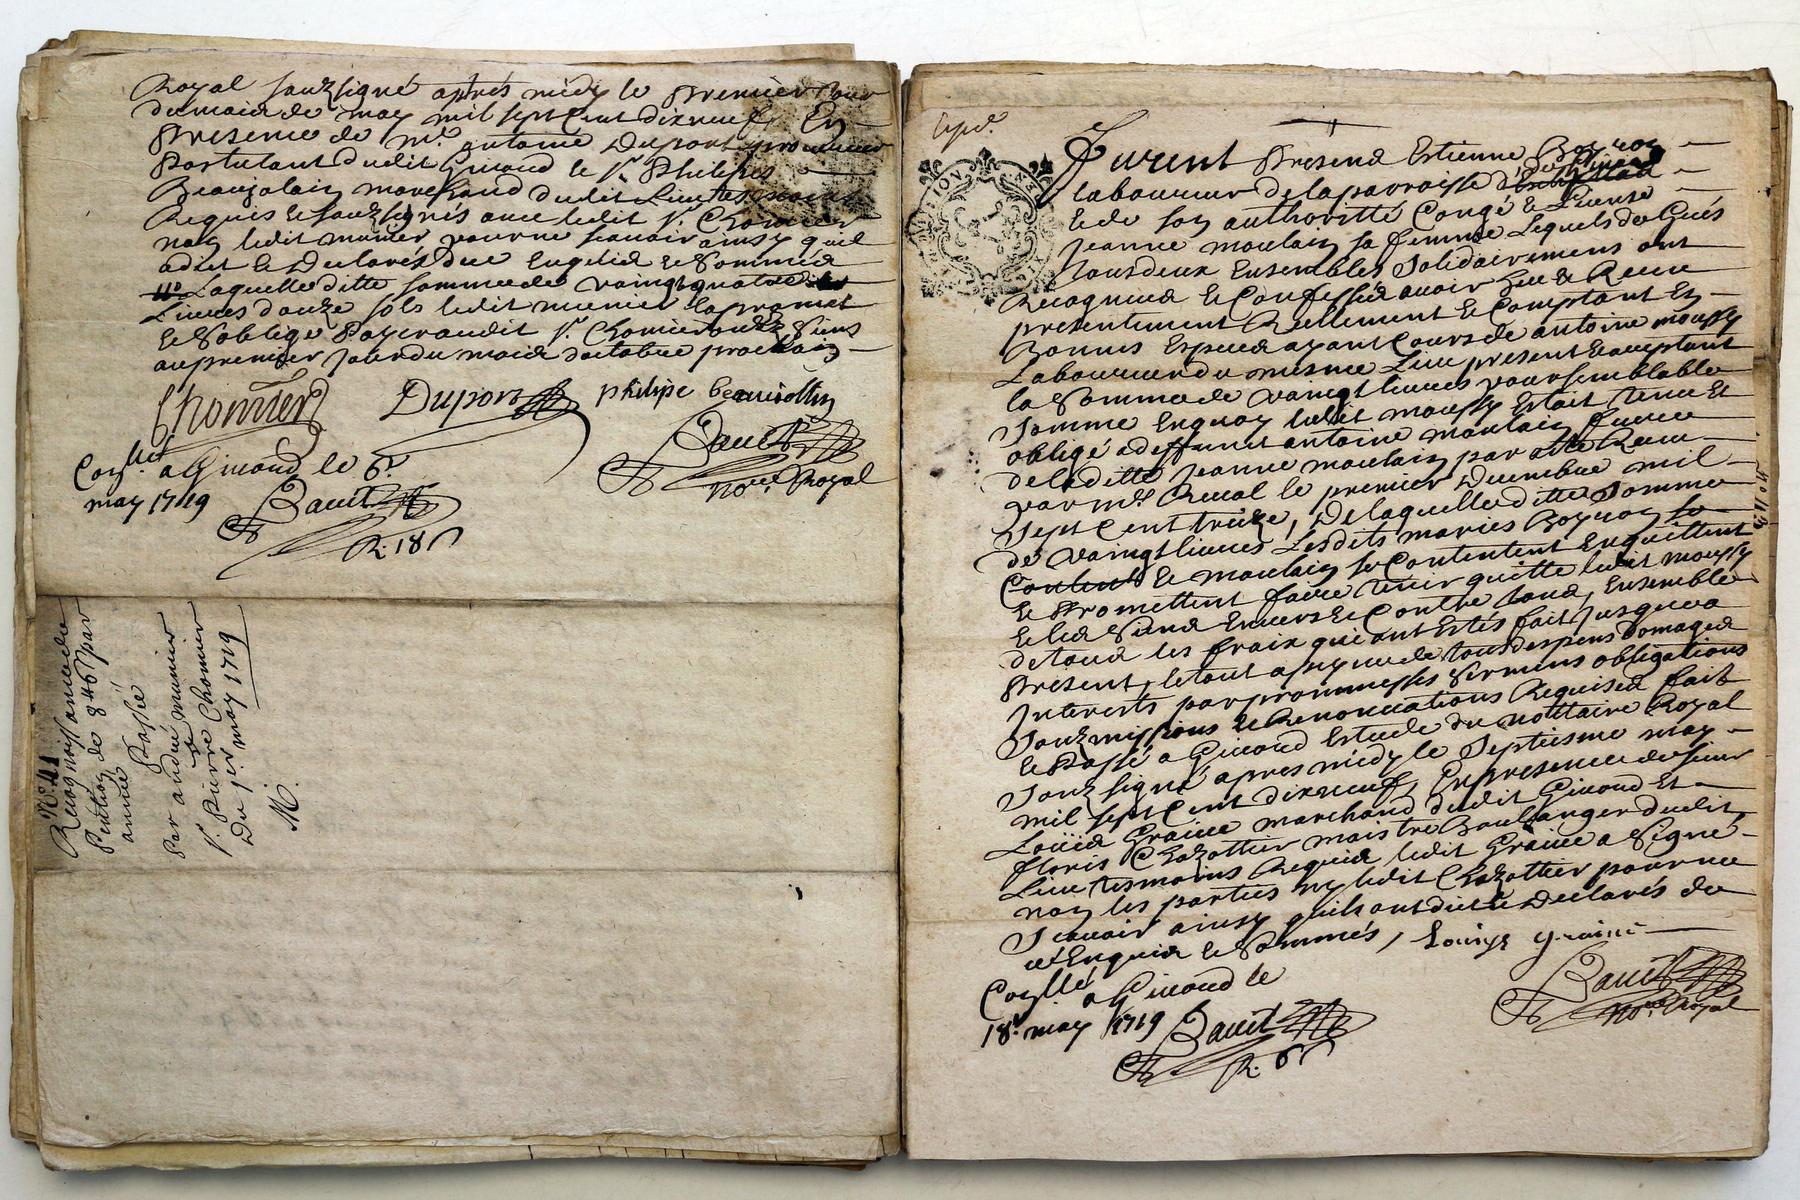 Royal souzsigné aprés midy le premier jour
du mois de may mil sept Cent dixneuf, En
presence de Me. antoine Dupont procureur
Postulant dudit Giraud le Sr. Philipes
Beaujolain marchand dudit Lieu tesmoins
Requis le souzsignés avec ledit Sr. Chomier
non ledit munier pour ne scavoir ainsy quil
adict et Declarés due Enquis et Sommés
Laquelle ditte somme de vaingt quatre
Livres douze sols ledit munier la promet
et S'oblige Payer audit Sr. Chomier ou es Siens
au premier jour du mois d'octobre prochain
Chomier Dupont philipe beauiollin
Bauet
no.re Royal
Con.llé a Giraud le 6e
may 1719
Bauet
R. 18 s
N.° 41
Recognoissance de
Pention de 8 46 s par
année
Passée
Par andré munier
a
Sr. Pierre Chomier
Du 1er. may 1719
M.
Exped.
Furent Presens Estienne Boyron
laboureur de la parroisse
et de son authoritté Congé et License
Jeanne moulain sa femme Lequels de Gués
tous deux Ensembles Solidairemens ont
Recognus et Confessés avoir heu et Receu
presentement Reellement et Comptant En
Bonnes Especes ayant Cours de antoine moussy
Laboureur du mesme Lieu present et acceptant
la Somme de vaingt livres pour semblable
somme Enquoy ledit moussy Estait tenu Et
obligé a deffunct antoine moulain frere
de laditte Jeanne moulain par acte Receu
par Me. Reual le premier Decembre mil
sept Cent treize, De laquelle ditte Somme
de vaingt livres Lesdits mariés Boyron
Contents et moulain se Contentent Enquittent
et Promettent faire tenir quitte ledit moussy
et les Siens Envers et Contre tous, Ensemble
de tous les fraix qui ont Estés fait jusques a
Present, le tout a peyne de tous despens Domages
Interests par prommesses Sermens obligations
Souzmissions et Renonciations Requises fait
et Passé a Giraud Estude du nottaire Royal
Souzsigné apres midy le Septiesme may
mil sept Cent dixneuf, En presence de sieur
Loüis Graine marchand dudit Giraud Et
floris Chazottier maistre Boullanger dudit
Lieu tesmoins Requis ledit Graine a Signé
non les parties ny ledit Chazottier pour ne
Scavoir ainsy quils ont dict et Declarés de
ce Enquis et Sommés, Louis graine
Bauet
no.re Royal
Con.llé a Giraud le
18e. may 1719
Bauet
R. 6 s